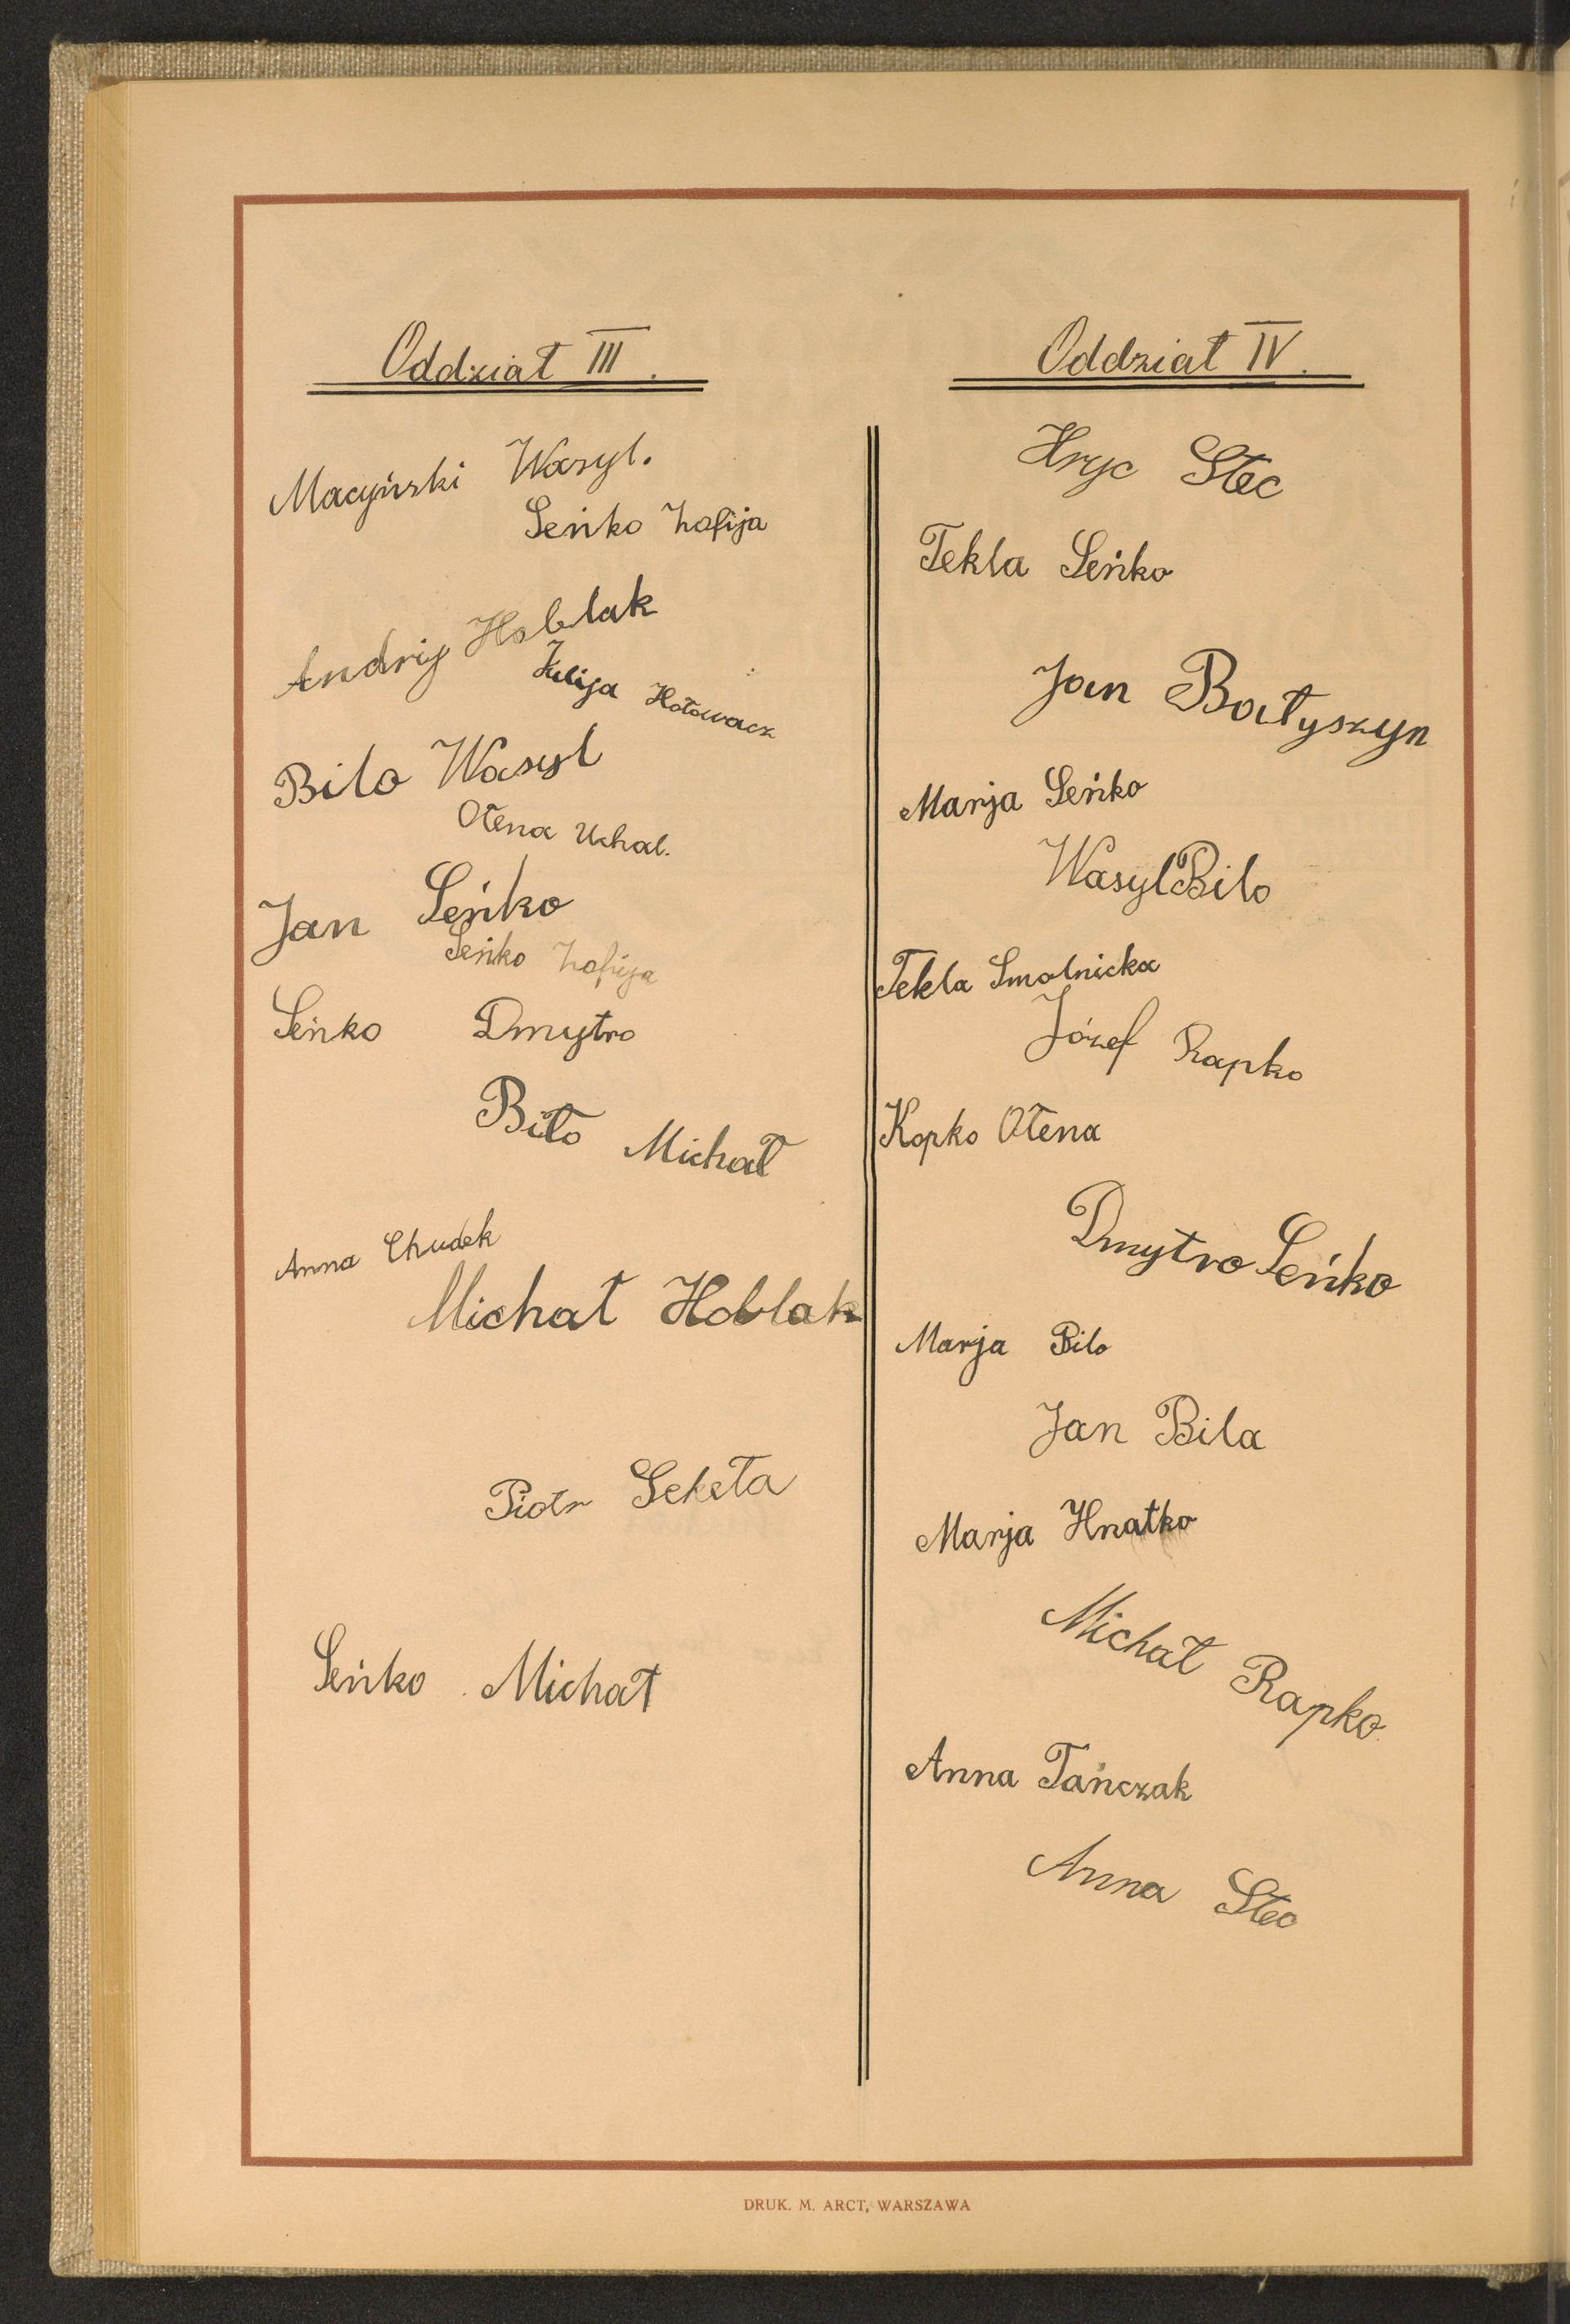 Oddział III.
Macyński Wasyl.
Seńko Zofija
Andrij Hoblak
Julija Hołowacz
Bilo Wasyl
Ołena Uchal.
Jan Seńko
Seńko Zofija
Seńko Dmytro
Biło Michał
Anna Chudek
Michał Hoblak
Piotr Seketa
Seńko Michał
Oddział IV.
Hryc Stec
Tekla Seńko
Jan Bałyszyn
Marja Seńko
Wasyl Bilo
Tekla Smolnicka
Józef Rapko
Kopko Ołena
Dmytro Seńko
Marja Bilo
Jan Bila
Marja Hnatko
Michał Rapko
Anna Tańczak
Anna Stec
DRUK. M. ARCT, WARSZAWA